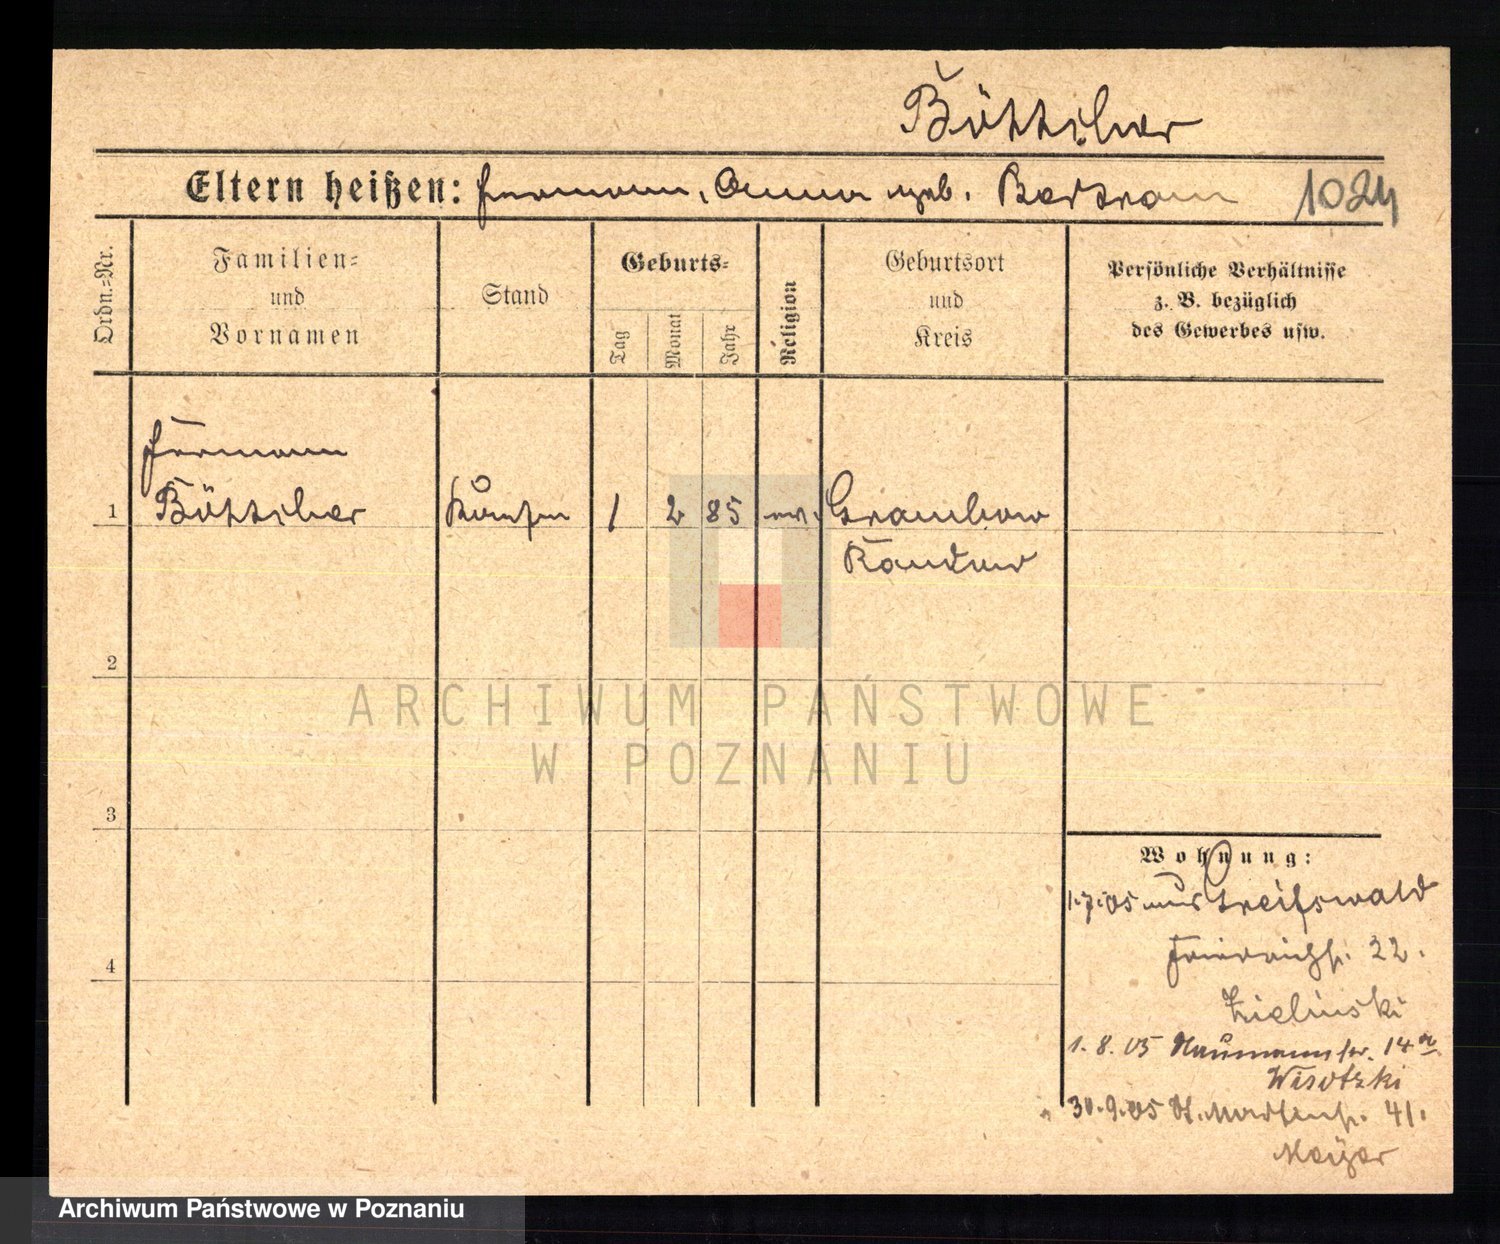 Böttcher
Eltern heißen: Hermann, Anna geb. Bertram 1024
Ordn.=Nr.
Familien=
und
Vornamen
Stand
Geburts=
Tag
Monat
Jahr
Religion
Geburtsort
und
Kreis
Persönliche Verhältnisse
z. B. bezüglich
des Gewerbes usw.
Hermann
1 Böttcher 1 2 85 ev. Grambow
Randow
2
3
4
Wohnung:
1.7.05 aus Greifswald
Friedrichstr. 22.
Zielinski
1.8.05 Naumannstr. 14a
Wisotzki
30.9.05 St. Martinstr. 41.
Meyer
ARCHIWUM PAŃSTWOWE
W POZNANIU
Archiwum Państwowe w Poznaniu